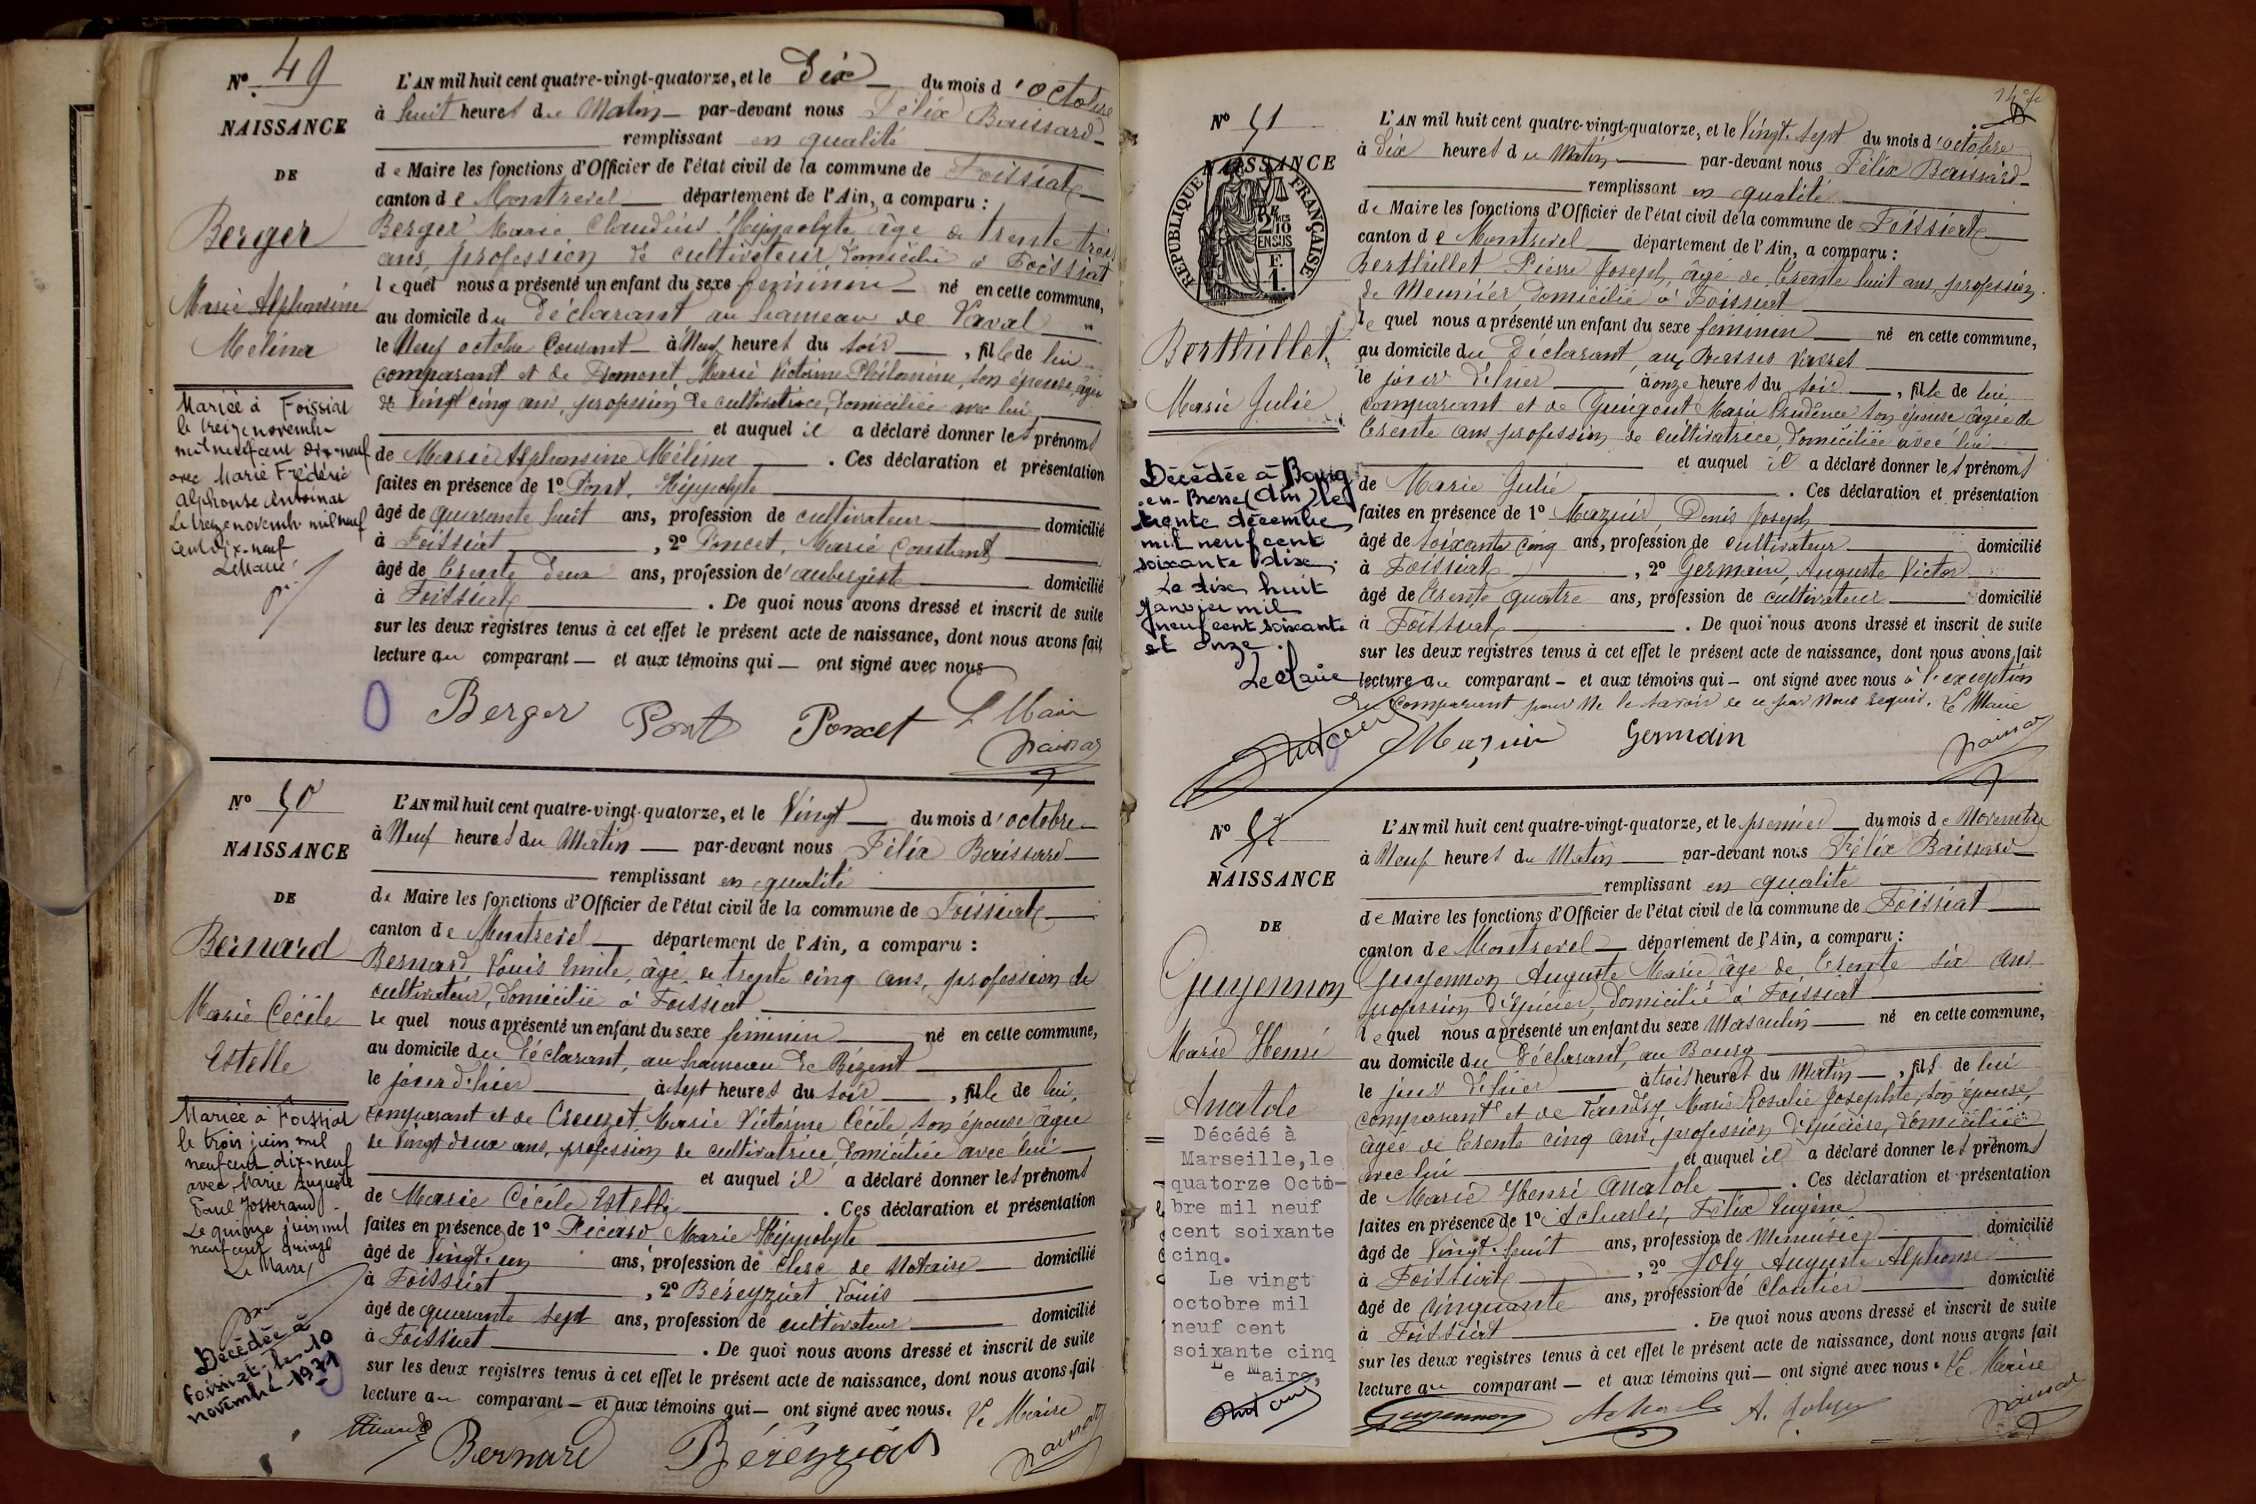 N° 49
NAISSANCE
DE
Berger
Marie Alphonsine
Mélina
Mariée à Foissiat
le treize novembre
mil neuf cent dix-neuf
avec Marie Frédéric
Alphonse Antoinat
Le treize novembre mil neuf
cent dix-neuf
Le Maire
L'AN mil huit cent quatre-vingt-quatorze, et le Dix du mois d'octobre
à huit heures du Matin par-devant nous Félix Baissard
remplissant en qualité
de Maire les fonctions d'Officier de l'état civil de la commune de Foissiat
canton de Montrevel département de l'Ain, a comparu :
Berger Marie Claudius Hippolyte âgé de trente trois
ans, profession de cultivateur domicilié à Foissiat
lequel nous a présenté un enfant du sexe féminin né en cette commune,
au domicile du déclarant au hameau de Laval
le Neuf octobre courant à Neuf heures du soir, fille de lui
comparant et de Domont Marie Victorine Philomène, son épouse, âgée
de vingt cinq ans, profession de cultivatrice, domiciliée avec lui
et auquel il a déclaré donner les prénoms
de Marie Alphonsine Mélina. Ces déclaration et présentation
faites en présence de 1° Pont, Hippolyte
âgé de quarante huit ans, profession de cultivateur domicilié
à Foissiat, 2° Poncet, Marie Constant
âgé de trente deux ans, profession d'aubergiste domicilié
à Foissiat. De quoi nous avons dressé et inscrit de suite
sur les deux registres tenus à cet effet le présent acte de naissance, dont nous avons fait
lecture au comparant et aux témoins qui ont signé avec nous
Berger Pont Poncet Le Maire
Baissard
N° 50
NAISSANCE
DE
Bernard
Marie Cécile
Estelle
Mariée à Foissiat
le trois juin mil
neuf cent dix-neuf
avec Marie Auguste
Paul Josserand
Le quinze juin mil
neuf cent
Le Maire,
Décédée à
Foissiat, le 10
novembre 1971
L'AN mil huit cent quatre-vingt-quatorze, et le Vingt du mois d'octobre
à Neuf heures du Matin par-devant nous Félix Baissard
remplissant en qualité
de Maire les fonctions d'Officier de l'état civil de la commune de Foissiat
canton de Montrevel département de l'Ain, a comparu :
Bernard, Louis Emile, âgé de trente cinq ans, profession de
cultivateur, domicilié à Foissiat
lequel nous a présenté un enfant du sexe féminin né en cette commune,
au domicile du déclarant, au hameau de Bézent
le jour d'hier à sept heures du soir, fille de lui,
comparant et de Creuzet, Marie Victorine Cécile son épouse âgée
de vingt deux ans, profession de cultivatrice domiciliée avec lui
et auquel il a déclaré donner les prénoms
de Marie Cécile Estelle. Ces déclaration et présentation
faites en présence de 1° Picard Marie Hippolyte
âgé de vingt-un ans, profession de clerc de Notaire domicilié
à Foissiat, 2° Béreyziat Louis
âgé de quarante sept ans, profession de cultivateur domicilié
à Foissiat. De quoi nous avons dressé et inscrit de suite
sur les deux registres tenus à cet effet le présent acte de naissance, dont nous avons fait
lecture au comparant et aux témoins qui ont signé avec nous. Le Maire
Bernard Béréyziat Baissard
N° 51
NAISSANCE
RÉPUBLIQUE FRANÇAISE
2/10
EN SUS
F.
1.
Berthillet
Marie Julie
Décédée à Bourg
en-Bresse (Ain) le
trente décembre
mil neuf cent
soixante dix.
Le dix huit
janvier mil
neuf cent soixante
et onze.
Le Maire
L'AN mil huit cent quatre-vingt-quatorze, et le Vingt-sept du mois d'octobre
à Dix heures du Matin par-devant nous Félix Baissard
remplissant en qualité
de Maire les fonctions d'Officier de l'état civil de la commune de Foissiat
canton de Montrevel département de l'Ain, a comparu :
Berthillet Pierre Joseph, âgé de trente huit ans, profession
de Meunier, domicilié à Foissiat
lequel nous a présenté un enfant du sexe féminin né en cette commune,
au domicile du déclarant, aux
le jour d'hier à onze heures du soir, fille de lui,
comparant et de Guigout Marie Prudence son épouse âgée de
trente ans profession de cultivatrice domiciliée avec lui
et auquel il a déclaré donner les prénoms
de Marie Julie. Ces déclaration et présentation
faites en présence de 1° Mazuir, Denis Joseph
âgé de soixante cinq ans, profession de cultivateur domicilié
à Foissiat, 2° Germain, Auguste Victor
âgé de trente quatre ans, profession de cultivateur domicilié
à Foissiat. De quoi nous avons dressé et inscrit de suite
sur les deux registres tenus à cet effet le présent acte de naissance, dont nous avons fait
lecture au comparant et aux témoins qui ont signé avec nous à l'exception
du comparant pour ne le savoir de ce par nous requis. Le Maire
Mazuir Germain Baissard
N° 52
NAISSANCE
DE
Guyennon
Marie Henri
Anatole
Décédé à
Marseille, le
quatorze Octo-
bre mil neuf
cent soixante
cinq.
Le vingt
octobre mil
neuf cent
soixante cinq
Le Maire,
L'AN mil huit cent quatre-vingt-quatorze, et le premier du mois de Novembre
à Neuf heures du Matin par-devant nous Félix Baissard
remplissant en qualité
de Maire les fonctions d'Officier de l'état civil de la commune de Foissiat
canton de Montrevel département de l'Ain, a comparu :
Guyennon Auguste Marie âgé de trente six ans
profession d'épicier, domicilié à Foissiat
lequel nous a présenté un enfant du sexe Masculin né en cette commune,
au domicile du déclarant, au Bourg
le jour d'hier à trois heures du Matin, fils de lui
comparant et de Landry, Marie Rosalie Josephte, son épouse,
âgée de trente cinq ans, profession d'épicière, domiciliée
avec lui et auquel il a déclaré donner les prénoms
de Marie Henri Anatole. Ces déclaration et présentation
faites en présence de 1° Acharles, Félix Eugène
âgé de vingt-huit ans, profession de Menuisier domicilié
à Foissiat, 2° Joly Auguste Alphonse
âgé de cinquante ans, profession de cloutier domicilié
à Foissiat. De quoi nous avons dressé et inscrit de suite
sur les deux registres tenus à cet effet le présent acte de naissance, dont nous avons fait
lecture au comparant et aux témoins qui ont signé avec nous. Le Maire
Guyennon A. Joly Baissard